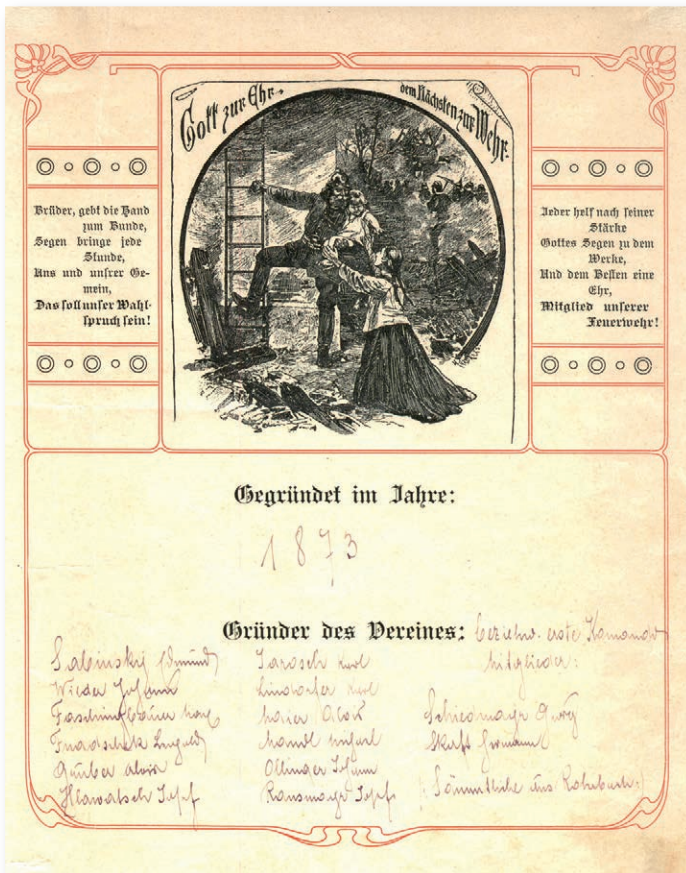 Gott zur Ehr, dem Nächsten zur Wehr.
Brüder, gebt die Hand
zum Bunde,
Segen bringe jede
Stunde,
Uns und unsrer Ge-
mein,
Das soll unser Wahl-
spruch sein!
Jeder helf nach seiner
Stärke
Gottes Segen zu dem
Werke,
Und dem Besten eine
Ehr,
Mitglied unserer
Feuerwehr!
Gegründet im Jahre:
1873
Gründer des Vereines: beziehw. erste Komando
Mitglieder:
Sabinsky Edmund
Wieder Johann
Faschingbauer
Leopold
Gruber Alois
Hlawatsch Josef
Jarosch Karl
Lindorfer Karl
Maier Alois
Mandl Michael
Ollinger Johann
Ransmayr Josef
Schiedmayr Georg
Skaft Hermann
Sämmtliche aus Rohrbach